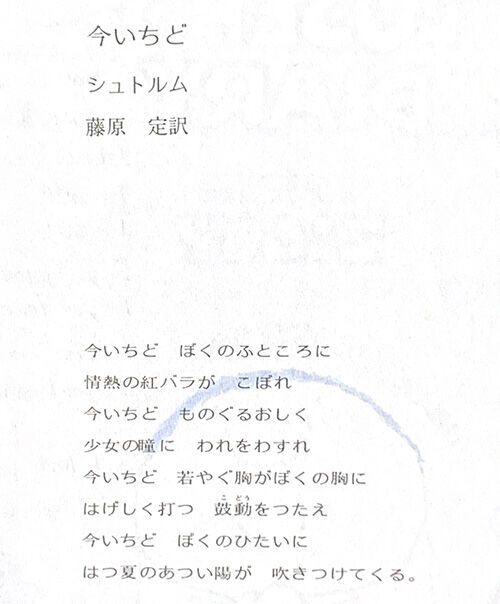 今いちど
シュトルム
藤原　定訳
今いちど　ぼくのふところに
情熱の紅バラが　こぼれ
今いちど　ものぐるおしく
少女の瞳に　われをわすれ
今いちど　若やぐ胸がぼくの胸に
はげしく打つ　鼓動をつたえ
今いちど　ぼくのひたいに
はつ夏のあつい陽が　吹きつけてくる。